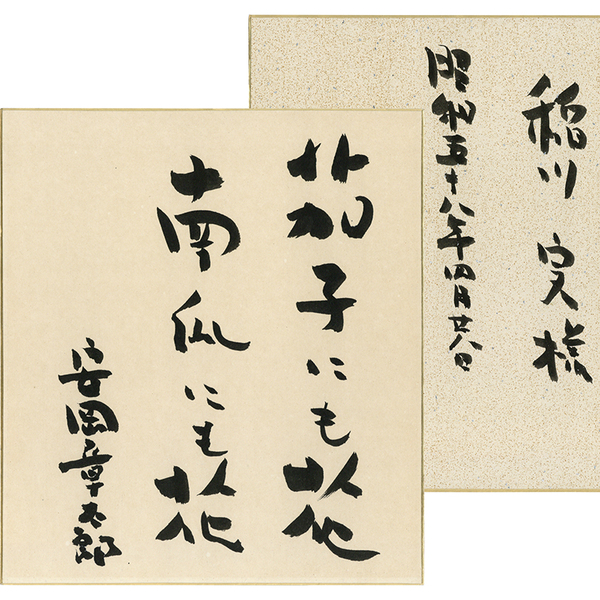 茄子にも花
南瓜にも花
安岡章太郎
稲川実様
昭和五十八年四月廿八日